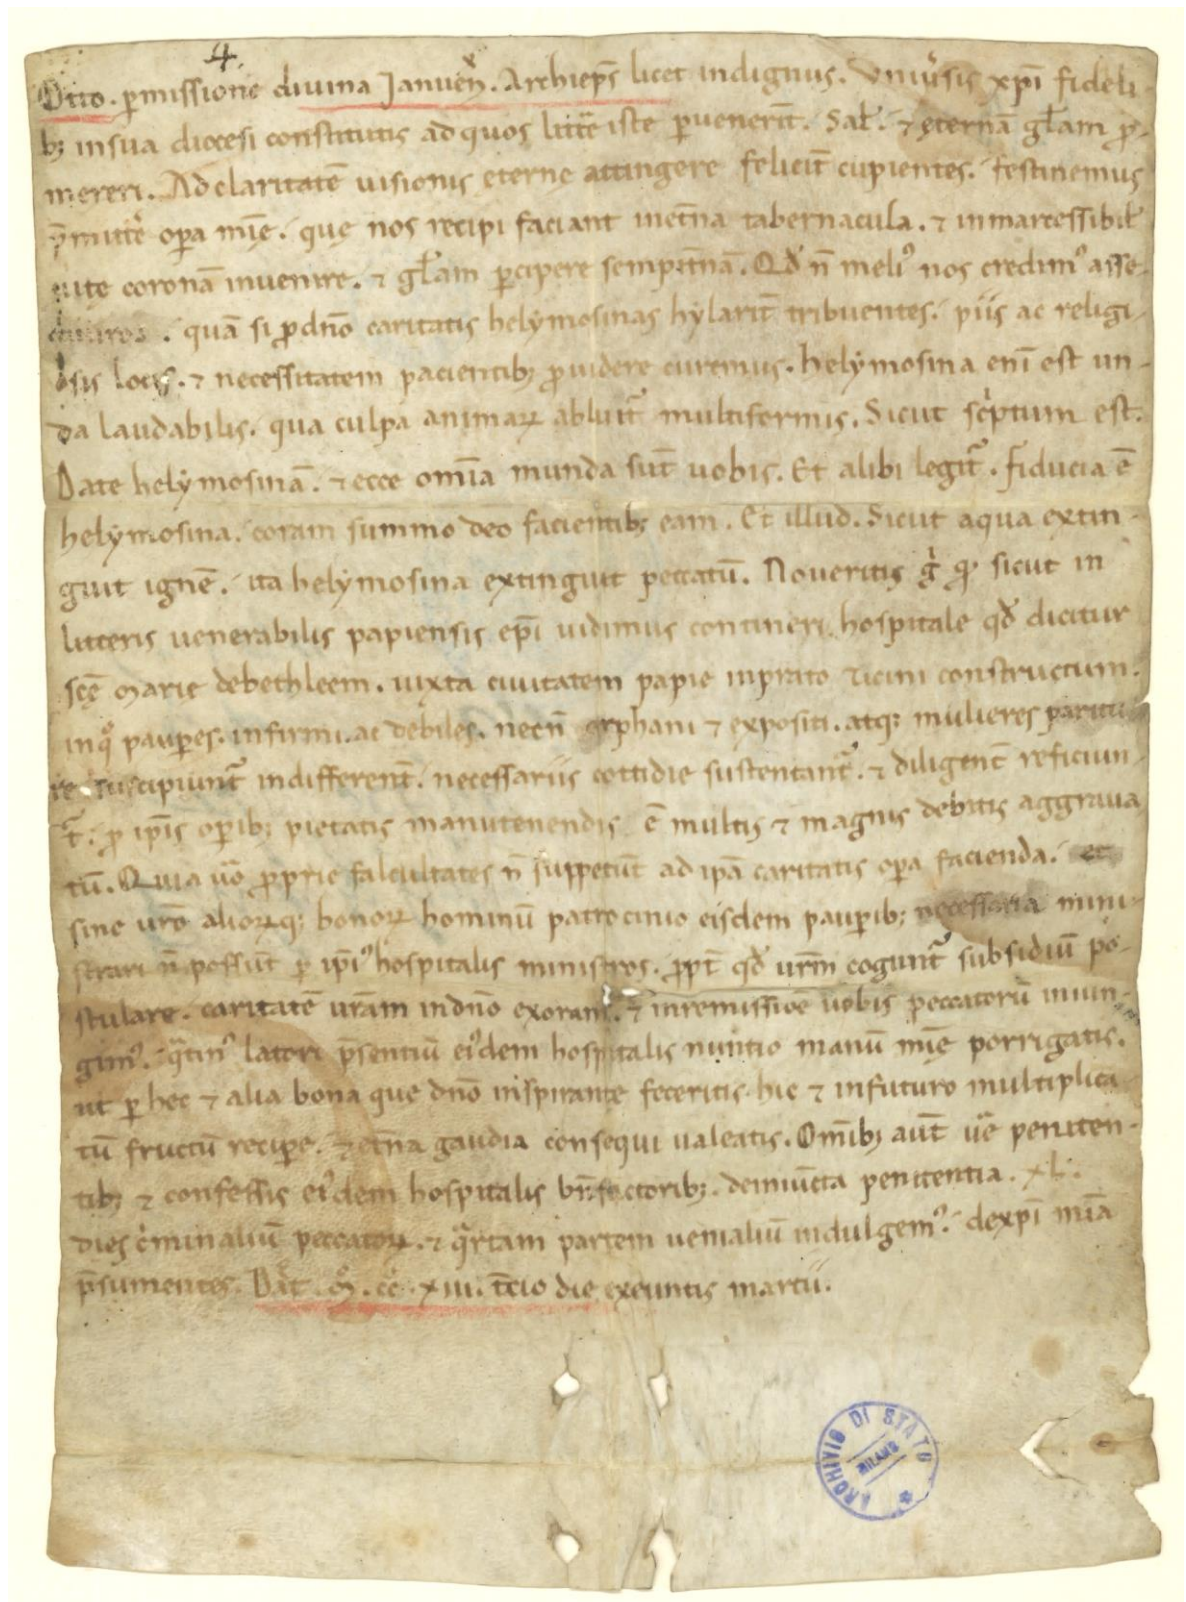 4.
Otto. ꝑmissione diuina Januen̄. Archiep̄s licet indignus. Vniu͛sis xp̄i fideli-
bꝫ insua diocesi constitutis ad quos litt̄e iste ꝑuenerīt. Sal̄. ⁊ ęternā gl̄am ꝓ-
mereri. Ad claritatē uisionis ęterne attingere feliciṫ cupientes. festinemus
p̄mitte͛ oꝑa mīe. que nos recipi faciant inet̄na tabernacula. ⁊ inmarcessibil̄
uite coronā inuenire. ⁊ gl̄am ꝑcipere sempit̄nā. Qd̄ n̄ meliꝰ nos credimꝰ asse-
. quā si ꝓ dn̄o caritatis helymosinas hylarit̄ tribuentes. piis ac religi-
osis locis. ⁊ necessitatem pacientibꝫ ꝓuidere curemus. helymosina eni̅ est un-
da laudabilis. qua culpa animaꝝ abluit᷑ multiformis. Sicut sc͛ptum est.
Date helymosinā. ⁊ ecce om̄ia munda sūt uobis. Et alibi legit᷑. fiducia ē
helymosina. coram summo deo facientibꝫ eam. Et illud. Sicut aqua extin-
guit ignē. ita helymosina extinguit peccatū. Noueritis g͛ ꝙ sicut in
litteris uenerabilis papiensis ep̄i uidimus contineri hospitale qd̄ dicitur
sc̄ę marię debethleem. iuxta ciuitatem papie inprato ticini constructum.
inqͦ pauꝑes. infirmi. ac debiles. necn̄ orphani ⁊ expositi. atqꝫ mulieres paritu
re suscipiunt᷑ indifferent̄. necessariis cottidie sustentant᷑. ⁊ diligent̄ reficiun-
t᷑. ꝓ ip̄is oꝑibꝫ pietatis manutenendis ē multis ⁊ magnis debitis aggraua
tū. Quia u͛o ꝓprie falcultates n̄ suppetūt ad ip̄a caritatis oꝑa facienda. et
sine ur̄o alioꝝqꝫ bonoꝝ hominū patrocinio eisdem pauꝑibꝫ necessaria mini-
strari n̄ possūt ꝑ ip̄iꝰ hospitalis ministros. ꝓpt̄ qd̄ ur̄m cogunt᷑ subsidiū po-
stulare. caritatē ur̄am indn̄o exoramꝰ. ⁊ inremissiōe uobis peccatorū iniun-
gimꝰ. qͣtinꝰ latori p̄sentiū eiꝰdem hospitalis nuntio manū mīe porrigatis.
ut ꝑ hec ⁊ alia bona que dn̄o inspirante feceritis. hic ⁊ infuturo multiplica
tū fructū reciꝑe. ⁊ et̄na gaudia consequi ualeatis. Om̄ibꝫ aūt u͛e peniten-
tibꝫ ⁊ confessis eiꝰdem hospitalis bn̄factoribꝫ. deiniūcta penitentia. xl.
dies c͛minaliū peccatoꝝ. ⁊ qͣrtam partem uenialiū indulgemꝰ. dexp̄i mīa
p̄sumentes. Dat̄. ꝳ. cc. xiii. t̄cio die exeuntis martii.
ARCHIVIO DI STATO
MILANO